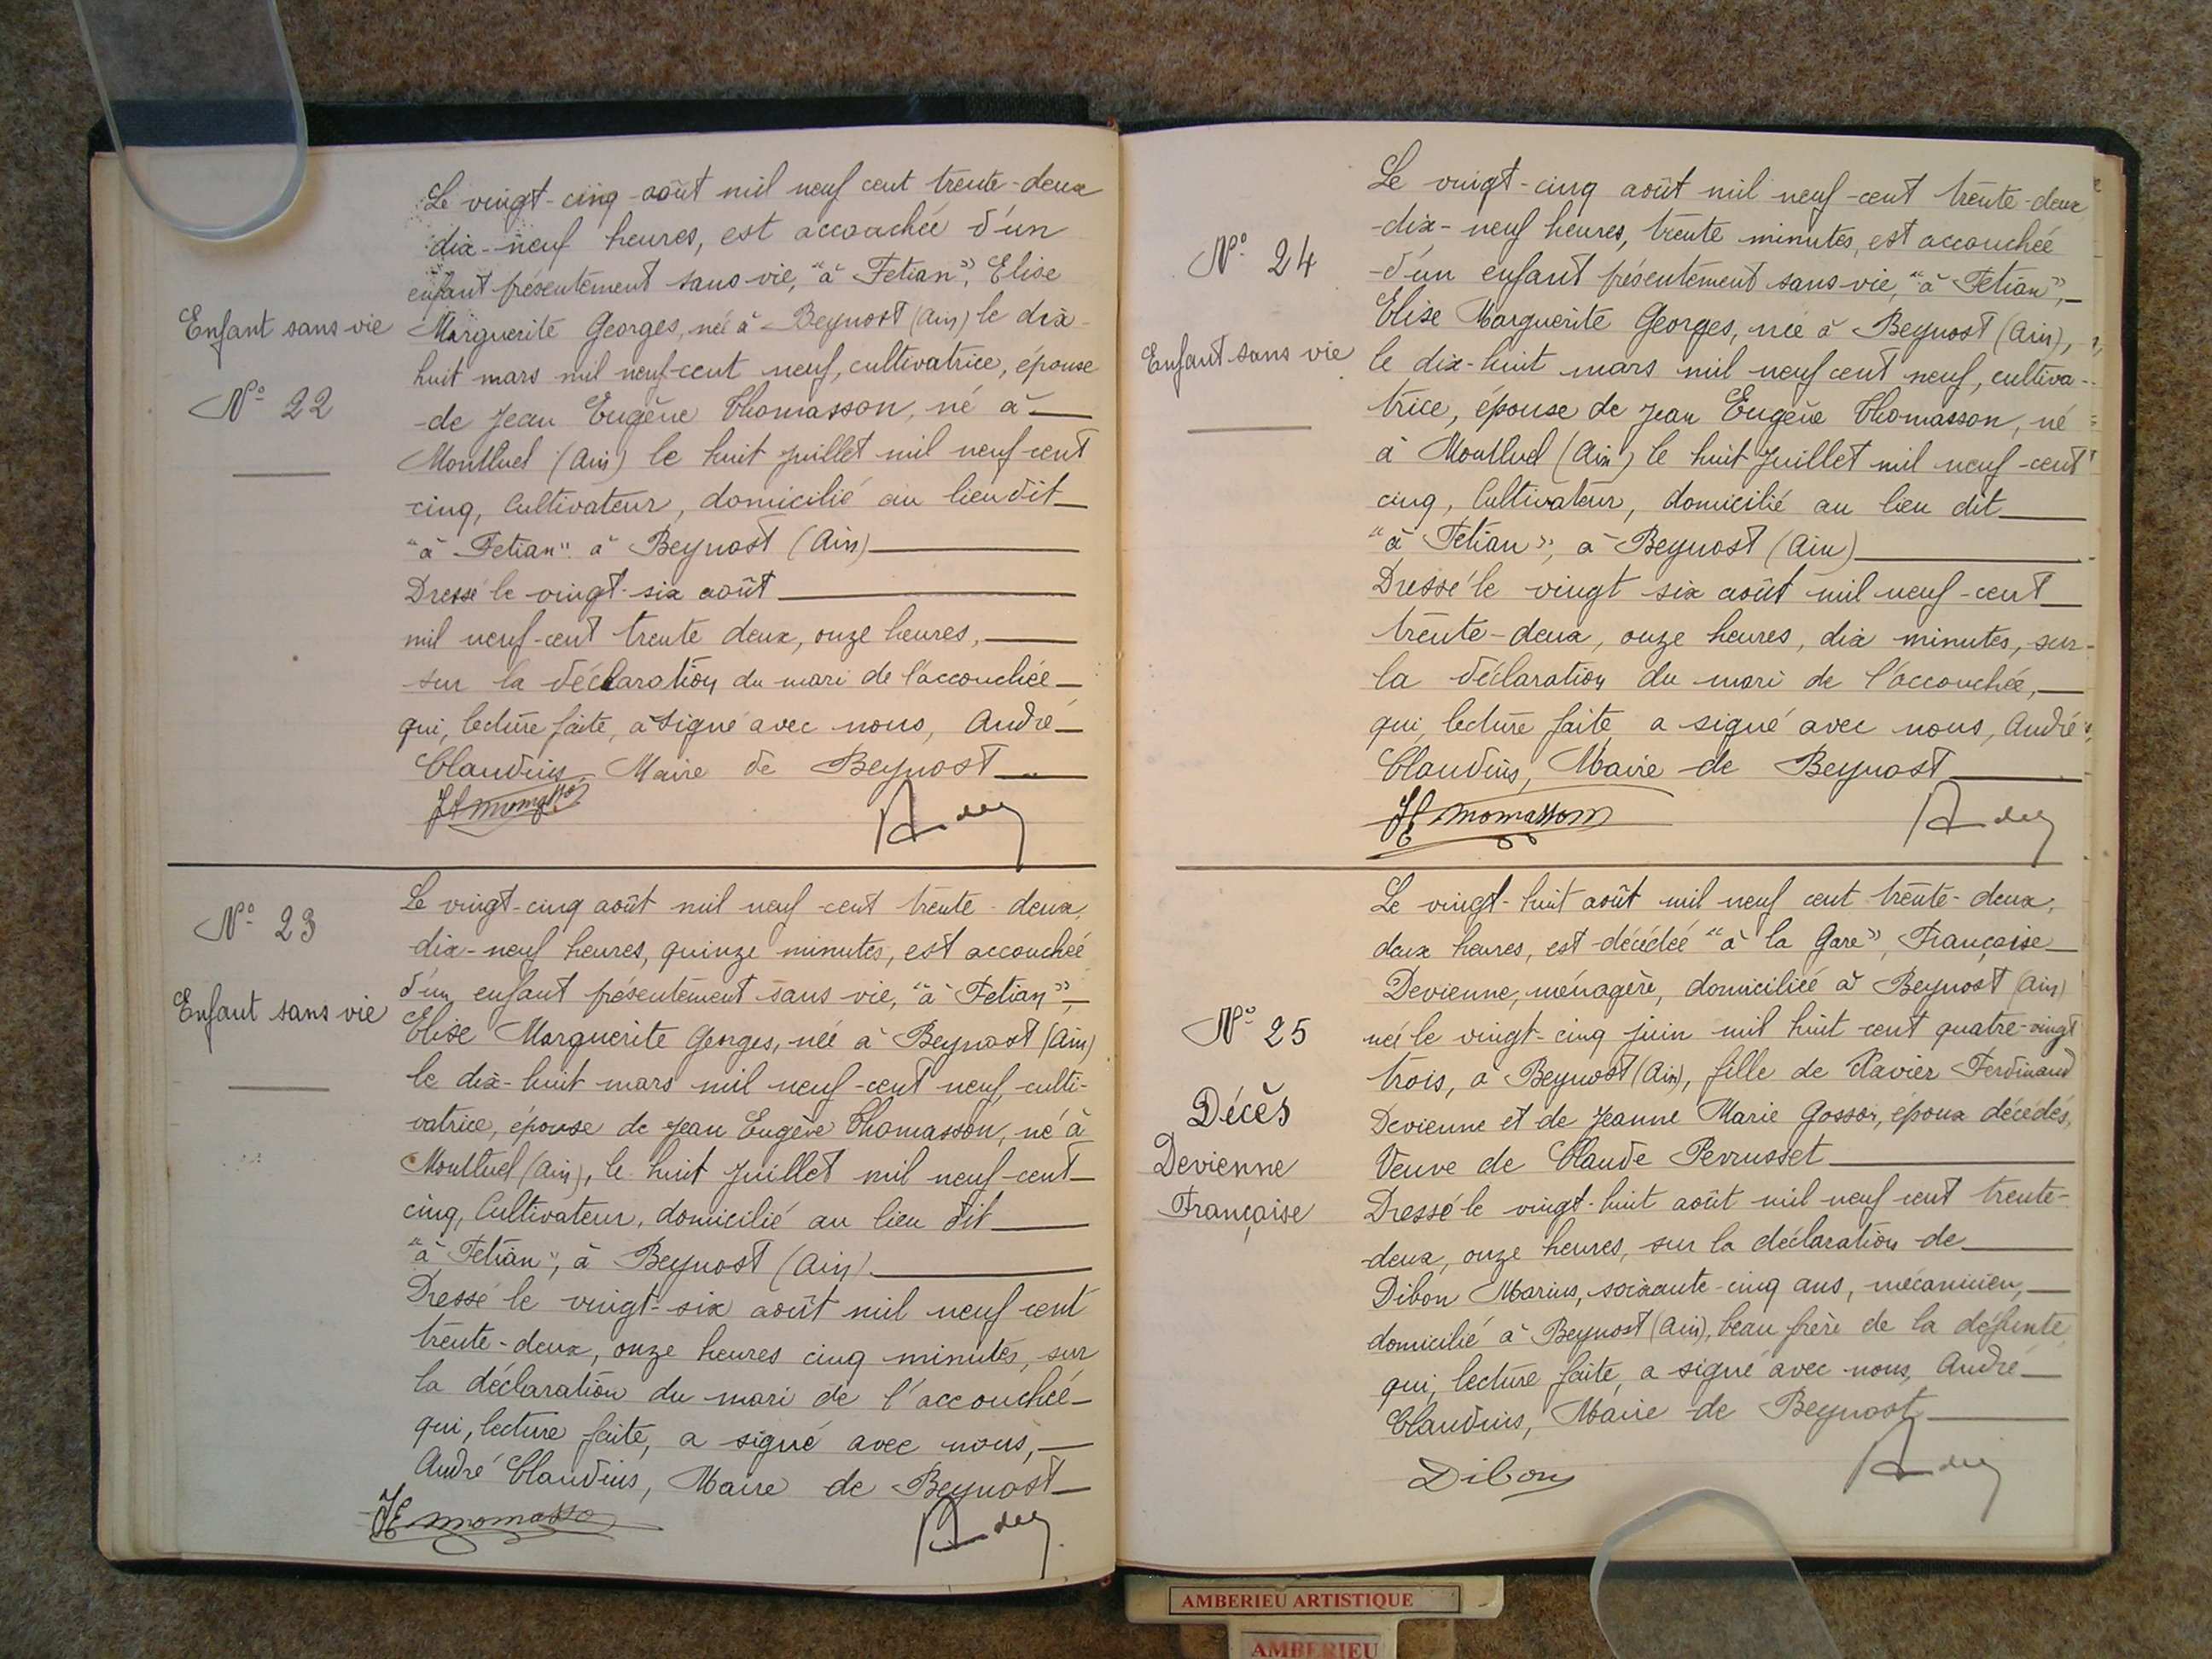 Enfant sans vie
N° 22
Le vingt-cinq août mil neuf cent trente-deux
dix-neuf heures, est accouchée d'un
enfant présentement sans vie, "à Fetian", Elise
Marguerite Georges, née à Beynost (Ain) le dix-
huit mars mil neuf-cent neuf, cultivatrice, épouse
de Jean Eugène Thomasson, né à
Montluel (Ain) le huit juillet mil neuf-cent
cinq, Cultivateur, domicilié au lieu dit
"à Fetian" à Beynost (Ain)
Dressé le vingt-six août
mil neuf-cent trente deux, onze heures,
sur la déclaration du mari de l'accouchée
qui, lecture faite, a signé avec nous, André
Claudius, Maire de Beynost
N° 23
Enfant sans vie
Le vingt-cinq août mil neuf-cent trente-deux,
dix-neuf heures, quinze minutes, est accouchée
d'un enfant présentement sans vie, "à Fetian",
Elise Marguerite Georges, née à Beynost (Ain)
le dix-huit mars mil neuf-cent neuf, culti-
vatrice, épouse de Jean Eugène Thomasson, né à
Montluel (Ain), le huit Juillet mil neuf-cent
cinq, Cultivateur, domicilié au lieu dit
"à Fetian", à Beynost (Ain).
Dressé le vingt-six août mil neuf cent
trente-deux, onze heures cinq minutes, sur
la déclaration du mari de l'accouchée
qui, lecture faite, a signé avec nous,
André Claudius, Maire de Beynost
N° 24
Enfant sans vie
Le vingt-cinq août mil neuf-cent trente-deux
dix-neuf heures, trente minutes, est accouchée
d'un enfant présentement sans vie, "à Fetian",
Elise Marguerite Georges, née à Beynost (Ain),
le dix-huit mars mil neuf cent neuf, cultiva-
trice, épouse de Jean Eugène Thomasson, né
à Montluel (Ain) le huit Juillet mil neuf-cent
cinq, Cultivateur, domicilié au lieu dit
"à Fetian", à Beynost (Ain)
Dressé le vingt six août mil neuf-cent
trente-deux, onze heures, dix minutes, sur
la déclaration du mari de l'accouchée,
qui, lecture faite a signé avec nous, André
Claudius, Maire de Beynost
JE Thomasson
N° 25
Décès
Devienne
Française
Le vingt-huit août mil neuf cent trente-deux,
deux heures, est décédée "à la Gare", Française
Devienne, ménagère, domiciliée à Beynost (Ain)
née le vingt-cinq juin mil huit-cent quatre-vingt
trois, à Beynost (Ain), fille de Xavier Ferdinand
Devienne et de Jeanne Marie Gosson, époux décédés,
Veuve de Claude Perrusset
Dressé le vingt-huit août mil neuf cent trente-
deux, onze heures, sur la déclaration de
Dibon Marius, soixante-cinq ans, mécanicien,
domicilié à Beynost (Ain), beau frère de la défunte
qui, lecture faite, a signé avec nous, André
Claudius, Maire de Beynost
Dibon
AMBERIEU ARTISTIQUE
AMBERIEU